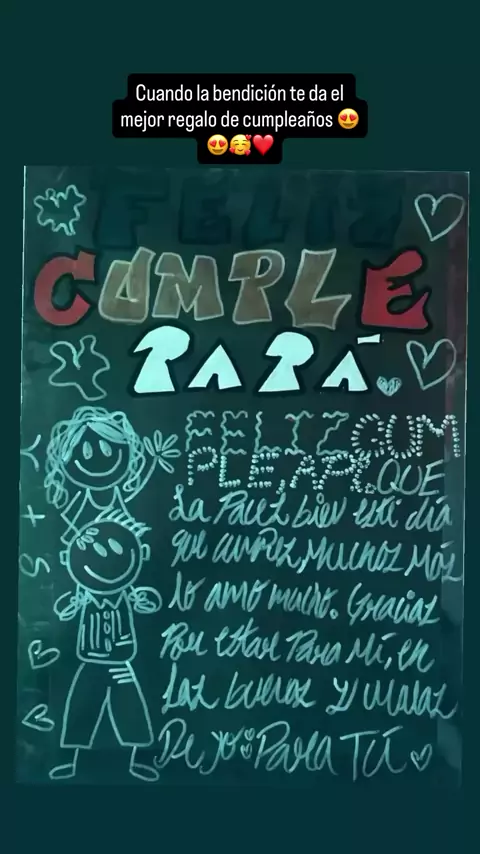 Cuando la bendición te da el
mejor regalo de cumpleaños 😍
😍🥰❤️
FELIZ
CUMPLE
PAPÁ.
FELIZ CUM
PLE, API. QUE
La Pacez bien esti día
que cumplaz Muchoz Más
lo amo mucho. Graciaz
Por estar Para Mí, en
Laz buenaz y malaz
De yo: Para TÚ